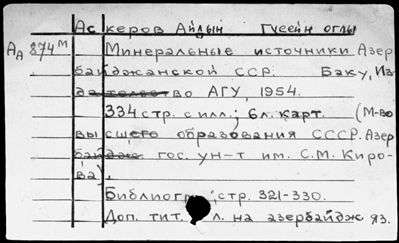 Аскеров Айдын Гусейн оглы
Аа 874м Минеральные источники Азер
байджанской ССР. Баку, Из
дательство АГУ, 1954.
334 стр. с илл.; 6 л. карт. (М-во
высшего образования СССР. Азер
байдж. гос. ун-т им. С.М. Киро-
ва).
Библиогр.: стр. 321-330.
Доп. тит. л. на азербайдж яз.